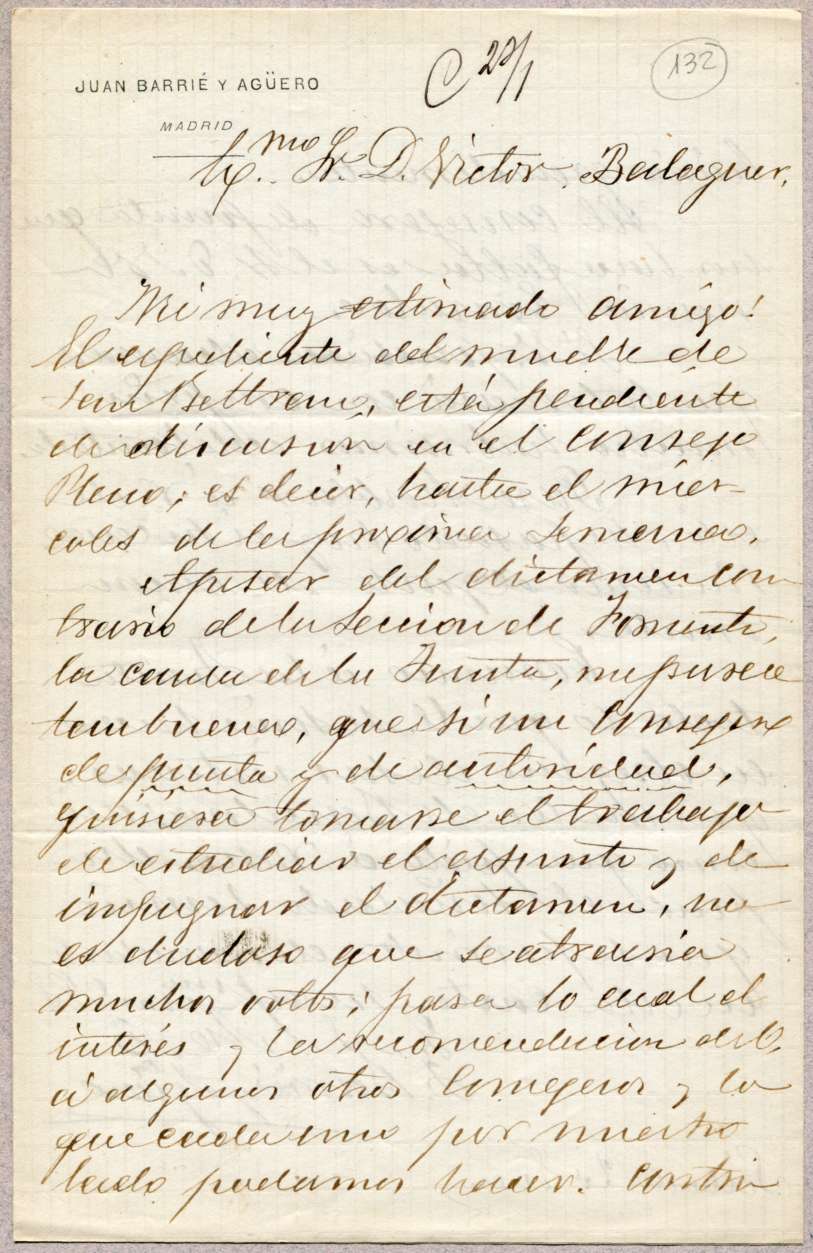 JUAN BARRIÉ Y AGÜERO
MADRID
C 23/1
132
Ex.mo Sr. D. Victor Balaguer.
Mi muy estimado amigo!
El expediente del muelle de
San Beltran, está pendiente
de discusión en el Consejo
Pleno; es decir, hasta el miér-
coles de la proxima semana.
Apesar del dictamen con
trario de la Seccion de Fomento,
la causa de la Junta, me parece
tan buena, que si un Consejero
de punta y de autoridad,
quisiera tomarse el trabajo
de estudiar el asunto y de
impugnar el dictamen, no
es dudoso que se atraeria
muchos votos; para lo cual el
interés y la recomendacion de V.
á algunos otros Consejeros y lo
que cada uno por nuestro
lado podamos hacer. Contri